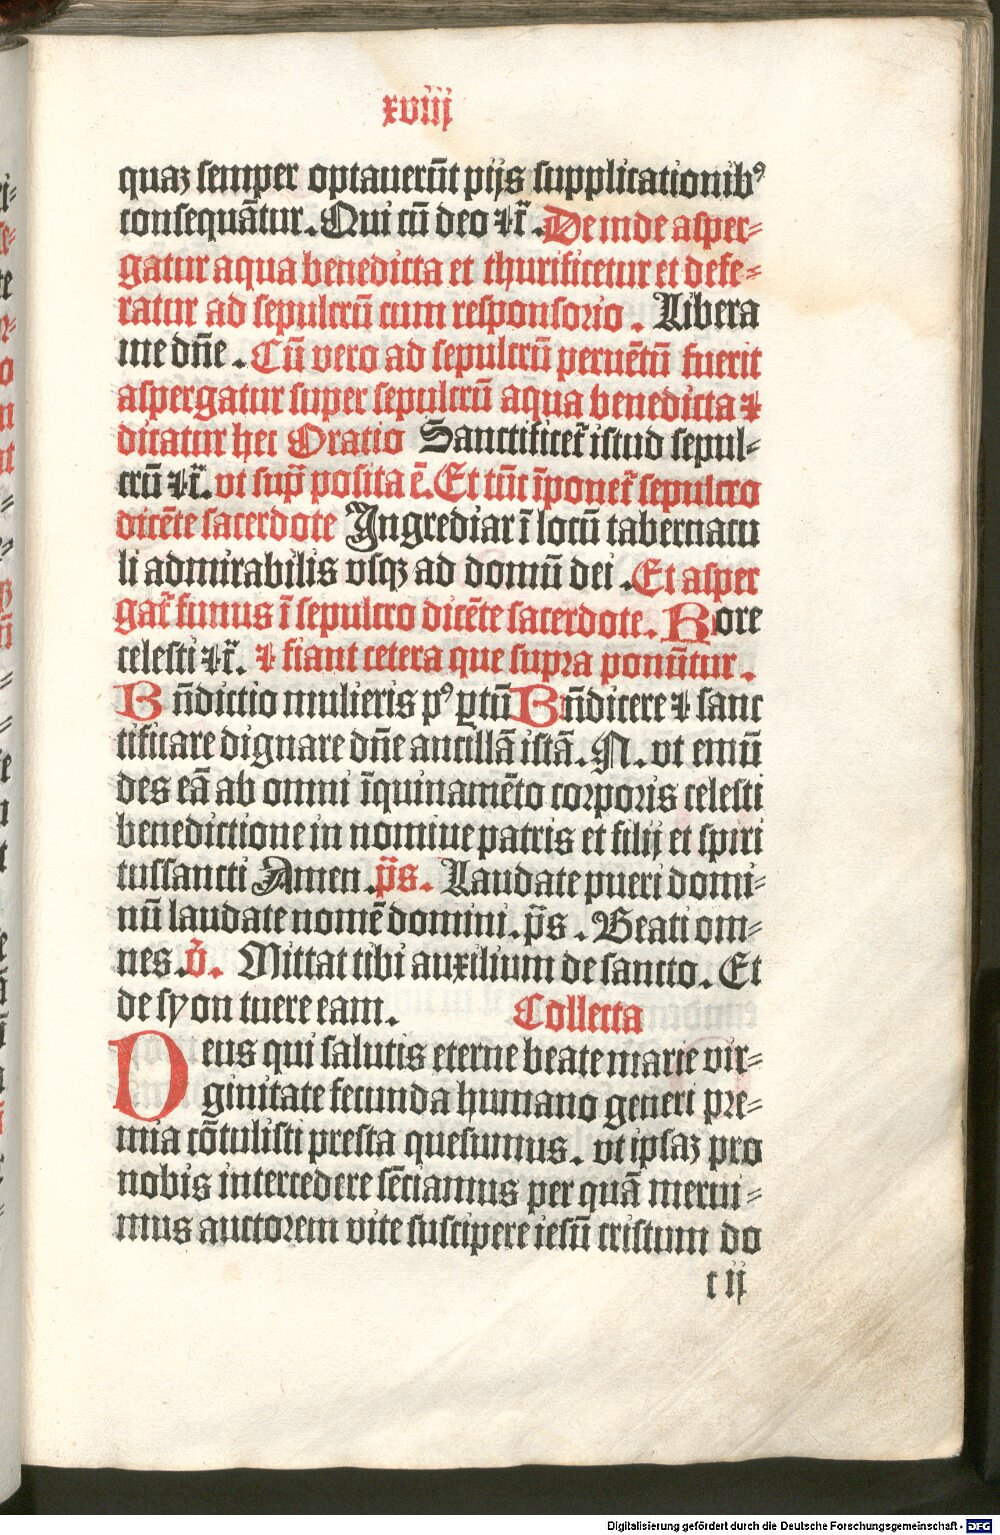 xviij
quaꝫ semper optauerūt pijs supplicationibꝰ
consequātur. Qui cū deo ⁊ r̄. De inde asper⸗
gatur aqua benedicta et thurificetur et defe⸗
ratur ad sepulcrū cum responsorio. Libera
me dn̄e. Cū vero ad sepulcrū peruētū fuerit
aspergatur super sepulcrū aqua benedicta ⁊
dicatur hec Oratio Sanctificet̄ istud sepul⸗
crū ⁊ r̄. vt sup̄ posita ē. Et tūc īponet̄ sepulcro
dicēte sacerdote Ingrediar ī locū tabernacu
li admirabilis vsqꝫ ad domū dei. Et asper
gat̄ funus ī sepulcro dicēte sacerdote. Rore
celesti ⁊ r̄. ⁊ fiant cetera que supra ponūtur.
Bn̄dictio mulieris pꝰ ꝑtū Bn̄dicere ⁊ sanc
tificare dignare dn̄e ancillā istā. N. vt emū
des eā ab omni īquinamēto corporis celesti
benedictione in nomine patris et filij et spiri
tussancti Amen. ps̄. Laudate pueri domi⸗
nū laudate nomē domini. ps̄. Beati om⸗
nes. v̄. Mittat tibi auxilium de sancto. Et
de syon tuere eam. Collecta
Deus qui salutis eterne beate marie vir⸗
ginitate fecunda humano generi pre⸗
mia cōtulisti presta quesumus. vt ipsaꝫ pro
nobis intercedere sēciamus per quā merui⸗
mus auctorem vite suscipere iesū cristum do
c ij
Digitalisierung gefördert durch die Deutsche Forschungsgemeinschaft - DFG